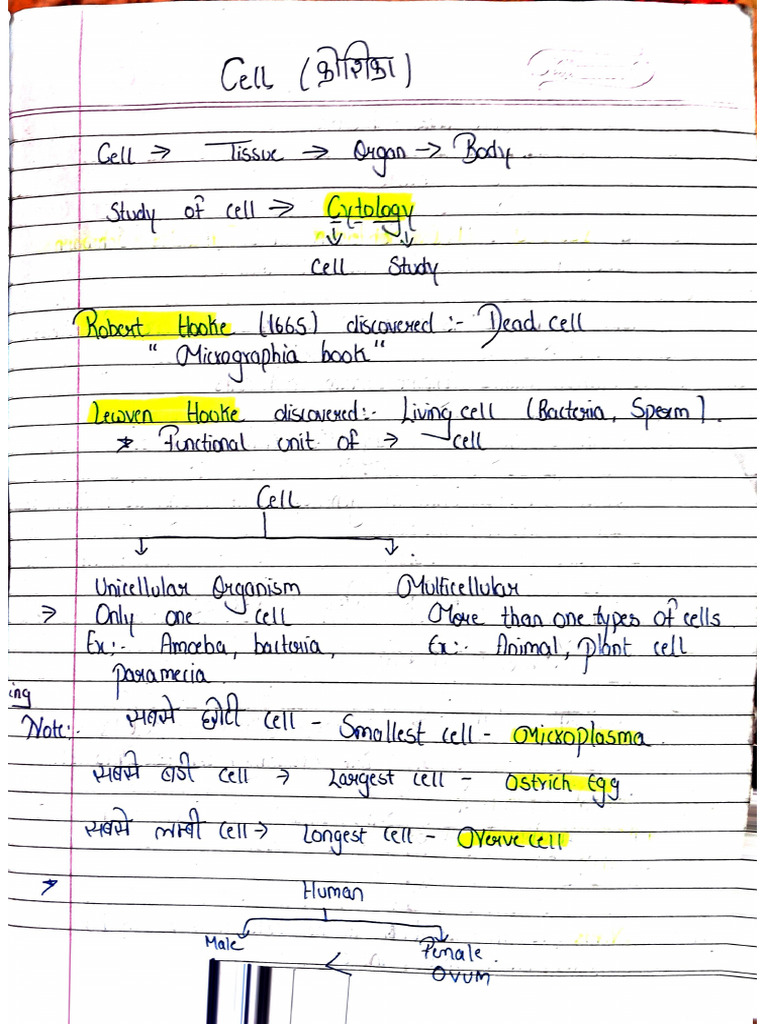 Cell (कोशिका)
Cell → Tissue → Organ → Body.
Study of cell → Cytology
Cell Study
Robert Hooke (1665) discovered :- Dead cell
" Micrographia book "
Lewven Hooke discovered:- Living cell (Bacteria, Sperm).
* Functional unit of → cell
Cell
Unicellular Organism Multicellular
→ Only one cell More than one types of cells
Ex:- Amoeba, bacteria, Ex:- Animal, plant cell
paramecia
ing
Note:- सबसे छोटी cell - Smallest cell - Microplasma
सबसे बडी cell → Largest cell - Ostrich Egg
सबसे लम्बी cell → Longest cell - Nerve cell
* Human
Male Female
OVUM